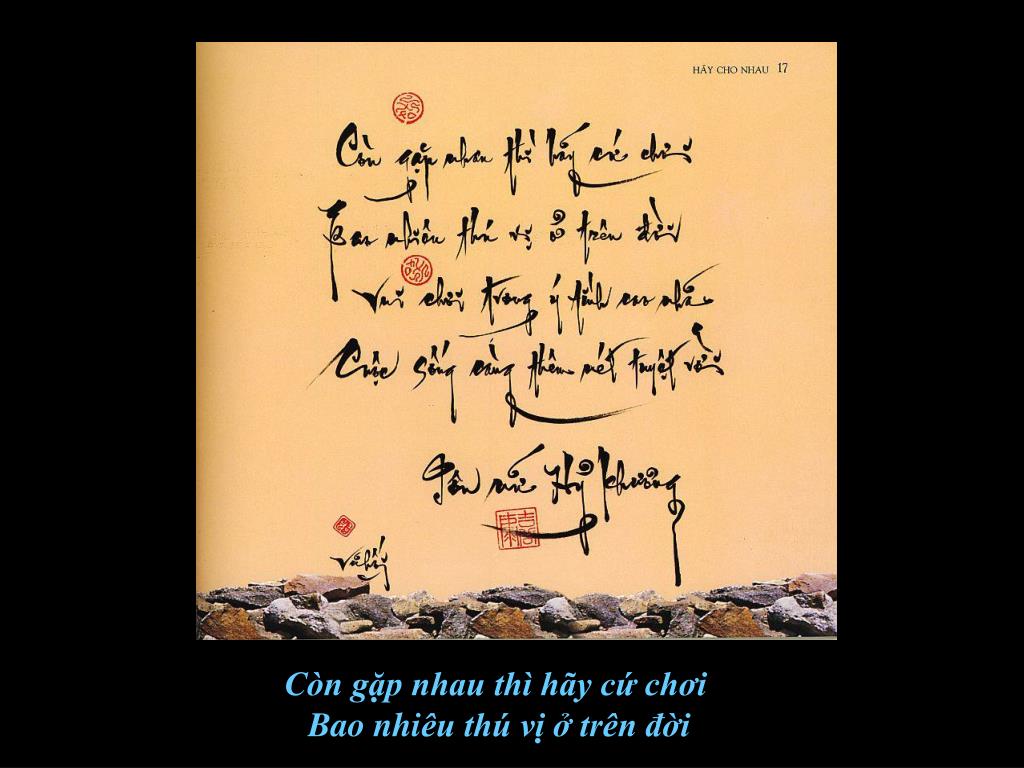 HÃY CHO NHAU 17
Còn gặp nhau thì hãy cứ chơi
Bao nhiêu thú vị ở trên đời
Vui chơi trong ý tình cao nhã
Cuộc sống càng thêm nét tuyệt vời
Tôn nữ Hỷ Khương
Còn gặp nhau thì hãy cứ chơi
Bao nhiêu thú vị ở trên đời